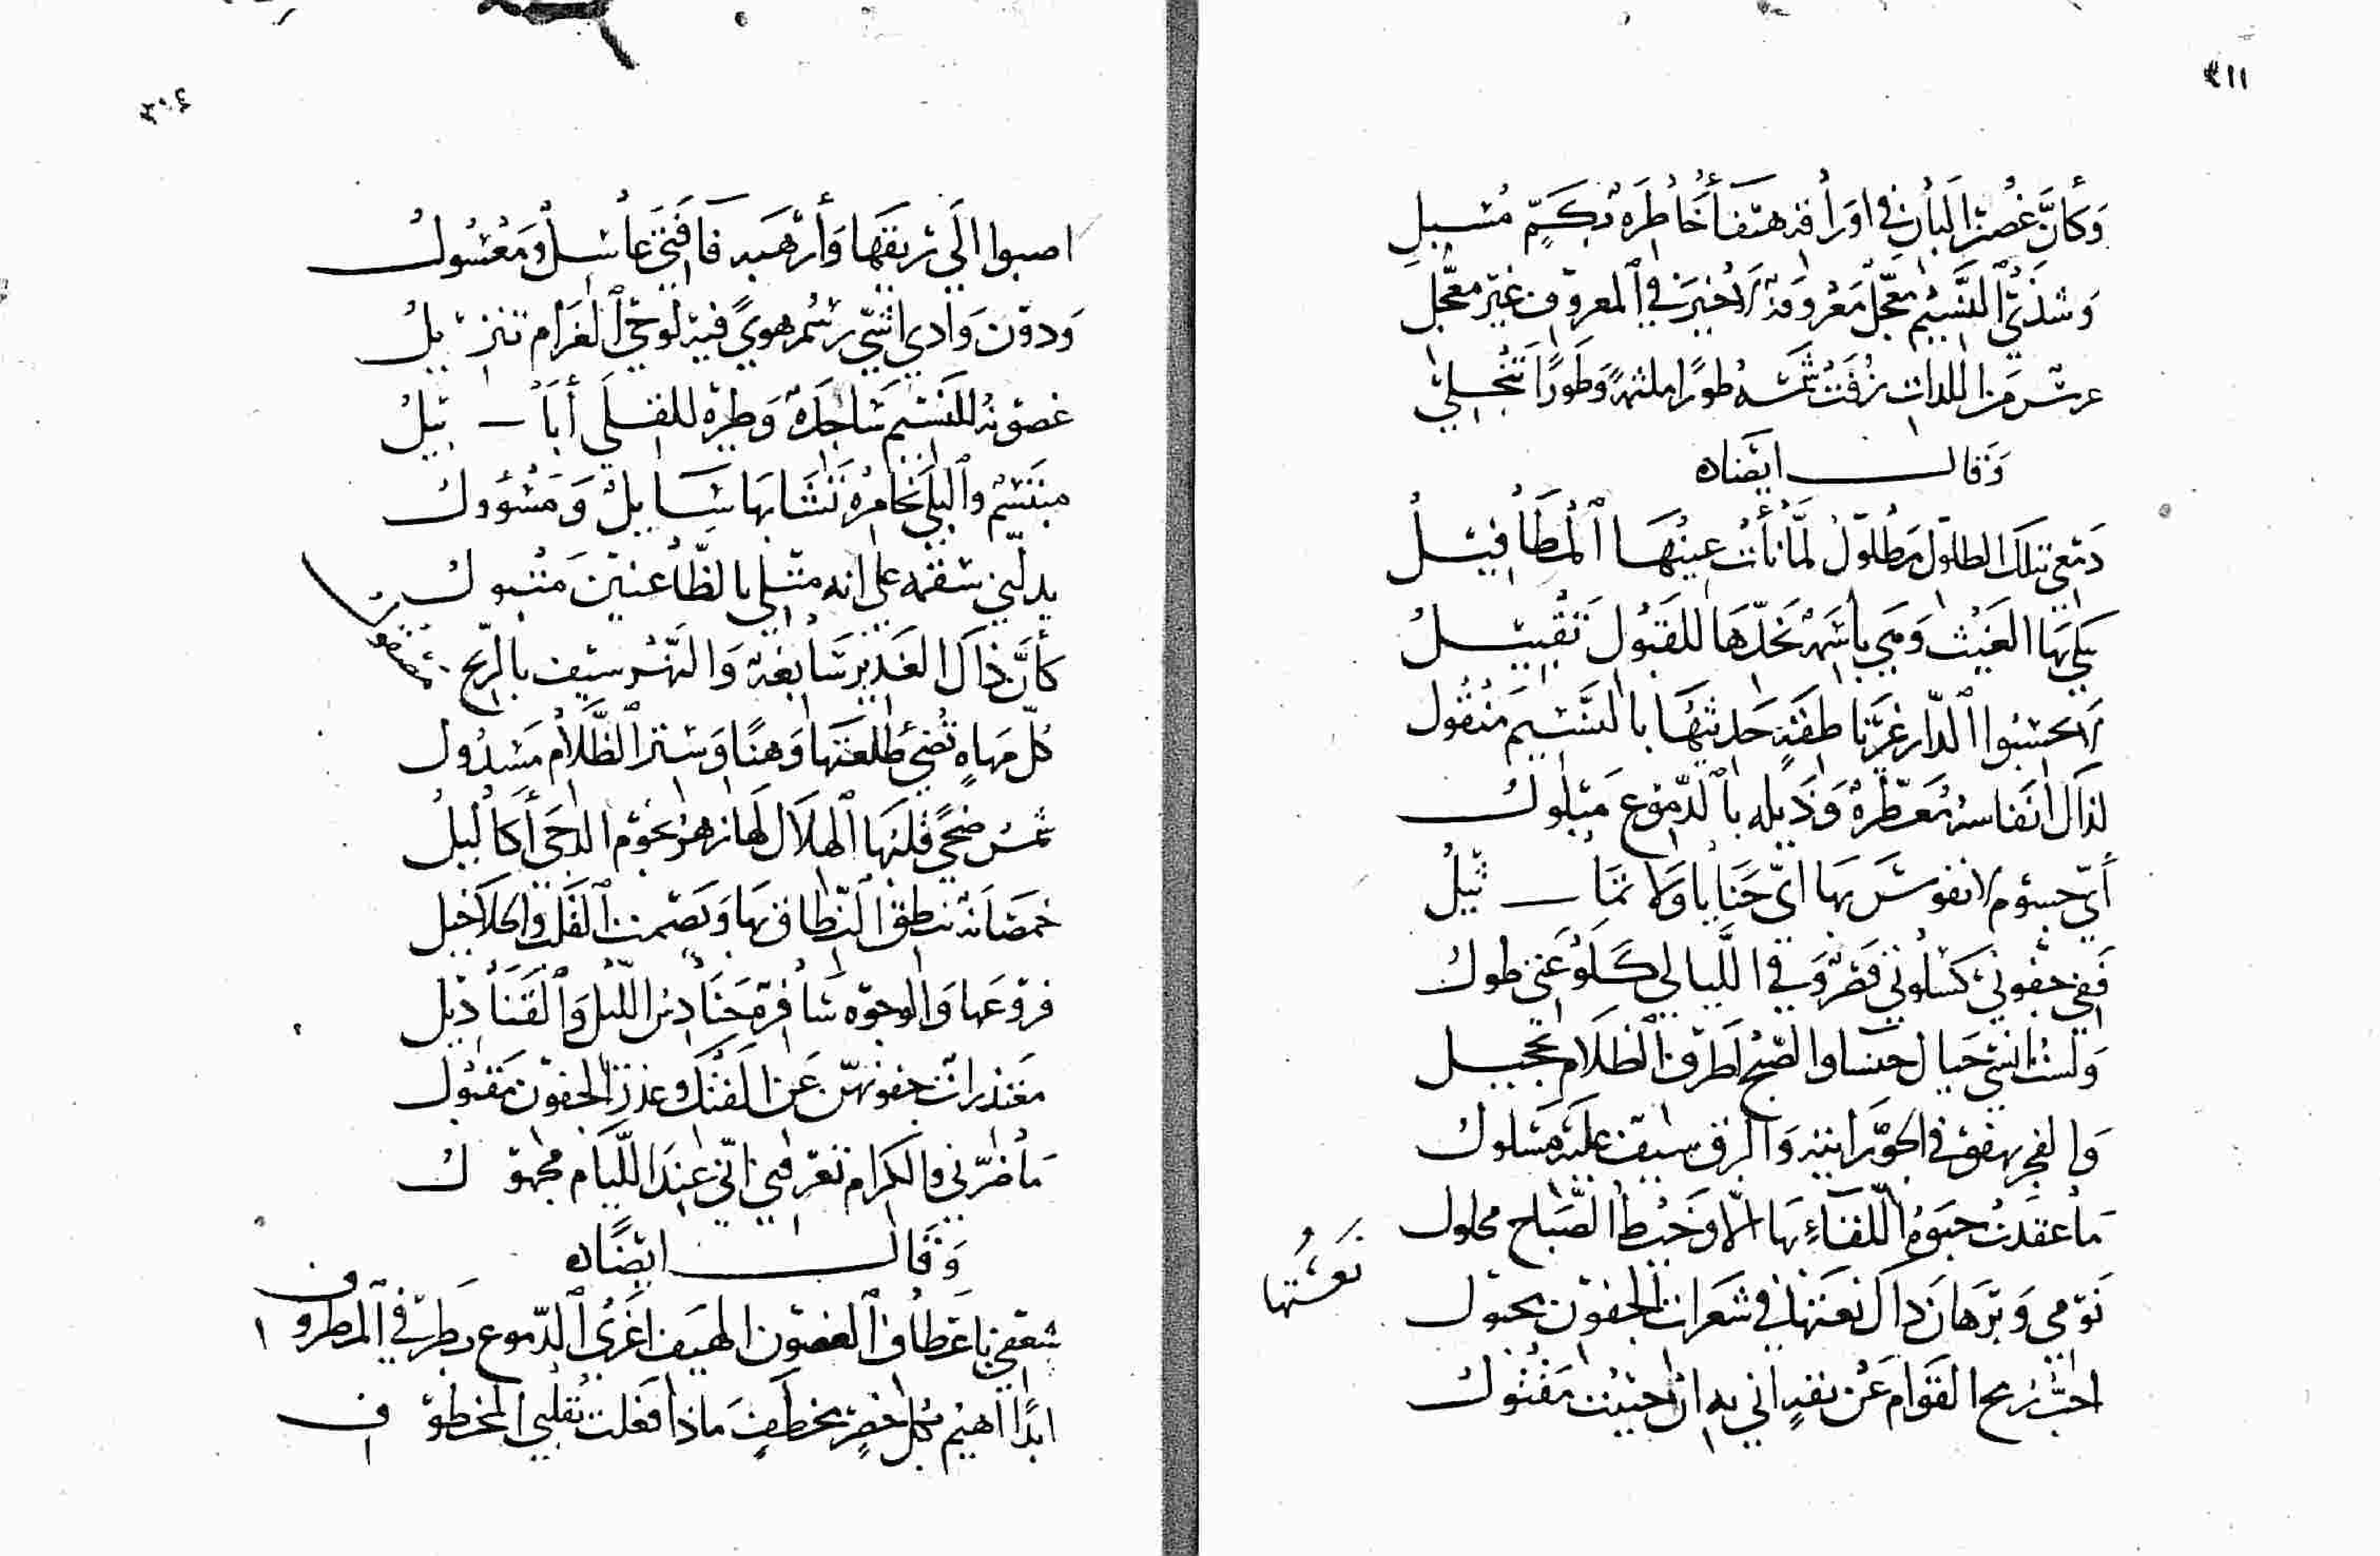 ٤١١
وَكأنَّ غُصنَ البَانِ في اورَاقه هتفَا خُاطِرَه بُكمٍّ مُسبلِ
وَشذىُ النَّسيم معَجّل مَعرُوفَهُ لاخيرَ في المعروف غير معَجّل
عرسٌ من اللذات زُفّت شمسُه طورًا ملثمةً وَطَورًا تنجلي
وَقال ايضًا
دَمعي بتلك الطلول مَطلُولُ لمَّا نأت عِينُهَا المَطَافيلُ
يبكي بَها الغَيث وَهي باسَمة بخَدّهَا للقبُول تَقبيلُ
لا تحسبُوا الدّار غير ناطقةٍ حَديثهَا بالنَّسيم مَنقُول
لذاك انفاسه مُعَطّرةٌ وَذَيله بالدّموع مَبلُولُ
أيّ جسُوم لا نفوسَ بهَا ايّ حَنايا وَلا تمَاثيلُ
فَفي جفُوني كسلوتي قصَرٌ وَفي الليالي كلَوعَتي طولُ
وَلستُ انسَى خيال حسنا والصّبح لطرف الظَلام تحجيل
والفجر يهفو في الجوّ رايته وَالبرق سيف عليَه مَسلولُ
مَا عقدت حبوة اللقاءِ بهَا الّا وَخيط الصَّباح محلول
نَومي وَبَرهان ذاك نعتها في شعرات الجفون محبول
نعستها
احبّ رُمح القوَام عَن نفدٍ اني به ان حييت مَقتولُ
٣٠٤
اصبوا الَي ريقهَا وَأرهَبه فَافتَى عاسلٌ ومَعسُولُ
وَدون وَادي اشى رسُم هوىً فيه لوحي الغَرام تنزيلُ
غصونهُ للنَسيم سَاجدَةٌ وَطيره للقلَى أبَابيلُ
مبتسمٌ والبلَى يخامِرُه تشَابهَا سَايلٌ وَمسؤولُ
يدلّني سقمه على انه مثلي بالظّاعنينَ متبولُ
كأنَّ ذاك الغَدير سَابغة وَالنّهر سيف بالرّيح مصقول
كلّ مهاةٍ تُضيُ طلعَتهَا وَهنًا وَستر الظَّلام مَسدُول
شمسُ ضحىً قلبَها الهلال لهَا زهرُ نجُوم الدجَى أكاليلُ
خمصَانةٌ ينطق النّطاق بهَا وَيصمت القَلب والخلاخيل
فروعَها وَالوجُوه سَافرةٌ حَنَادِسُ الليل وَالقَنَاديل
معَتذراتٌ جفونهنّ عَن الفتك وعذر الجفون مَقبول
مَا ضرّني والكرام تعرفني انّي عندَ اللئام مجهولُ
وَقال ايضًا
شعفي باعَطاف الغصون الهيَف اغرَى الدّموع بطرفي المطروف
ابدًا اهيم بكل خصرٍ مخطَفٍ مَاذا فعَلت بقلبي المخطوف